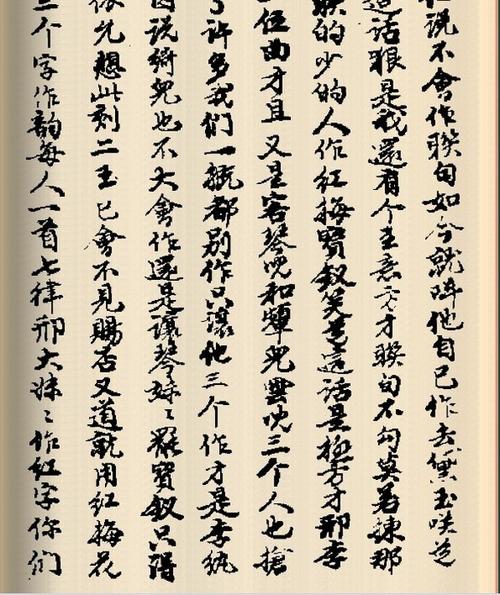 说不會作聯句如今就叫他自己作去黛玉咲道
這話狠是我還有个主意方才聯句不勾莫若揀那
聯的少的人作紅梅寳釵笑道這話是極方才邢李
三位曲才且又是客琴児和顰児雲児三个人也搶
了许多我们一槩都别作只讓他三个作才是李紈
因说綺児也不大會作還是讓琴妹〻罷寳釵只得
依允想此刻二玉已會不見賜否又道就用紅梅花
三个字作韻每人一首七律邢大妹〻作紅字你们